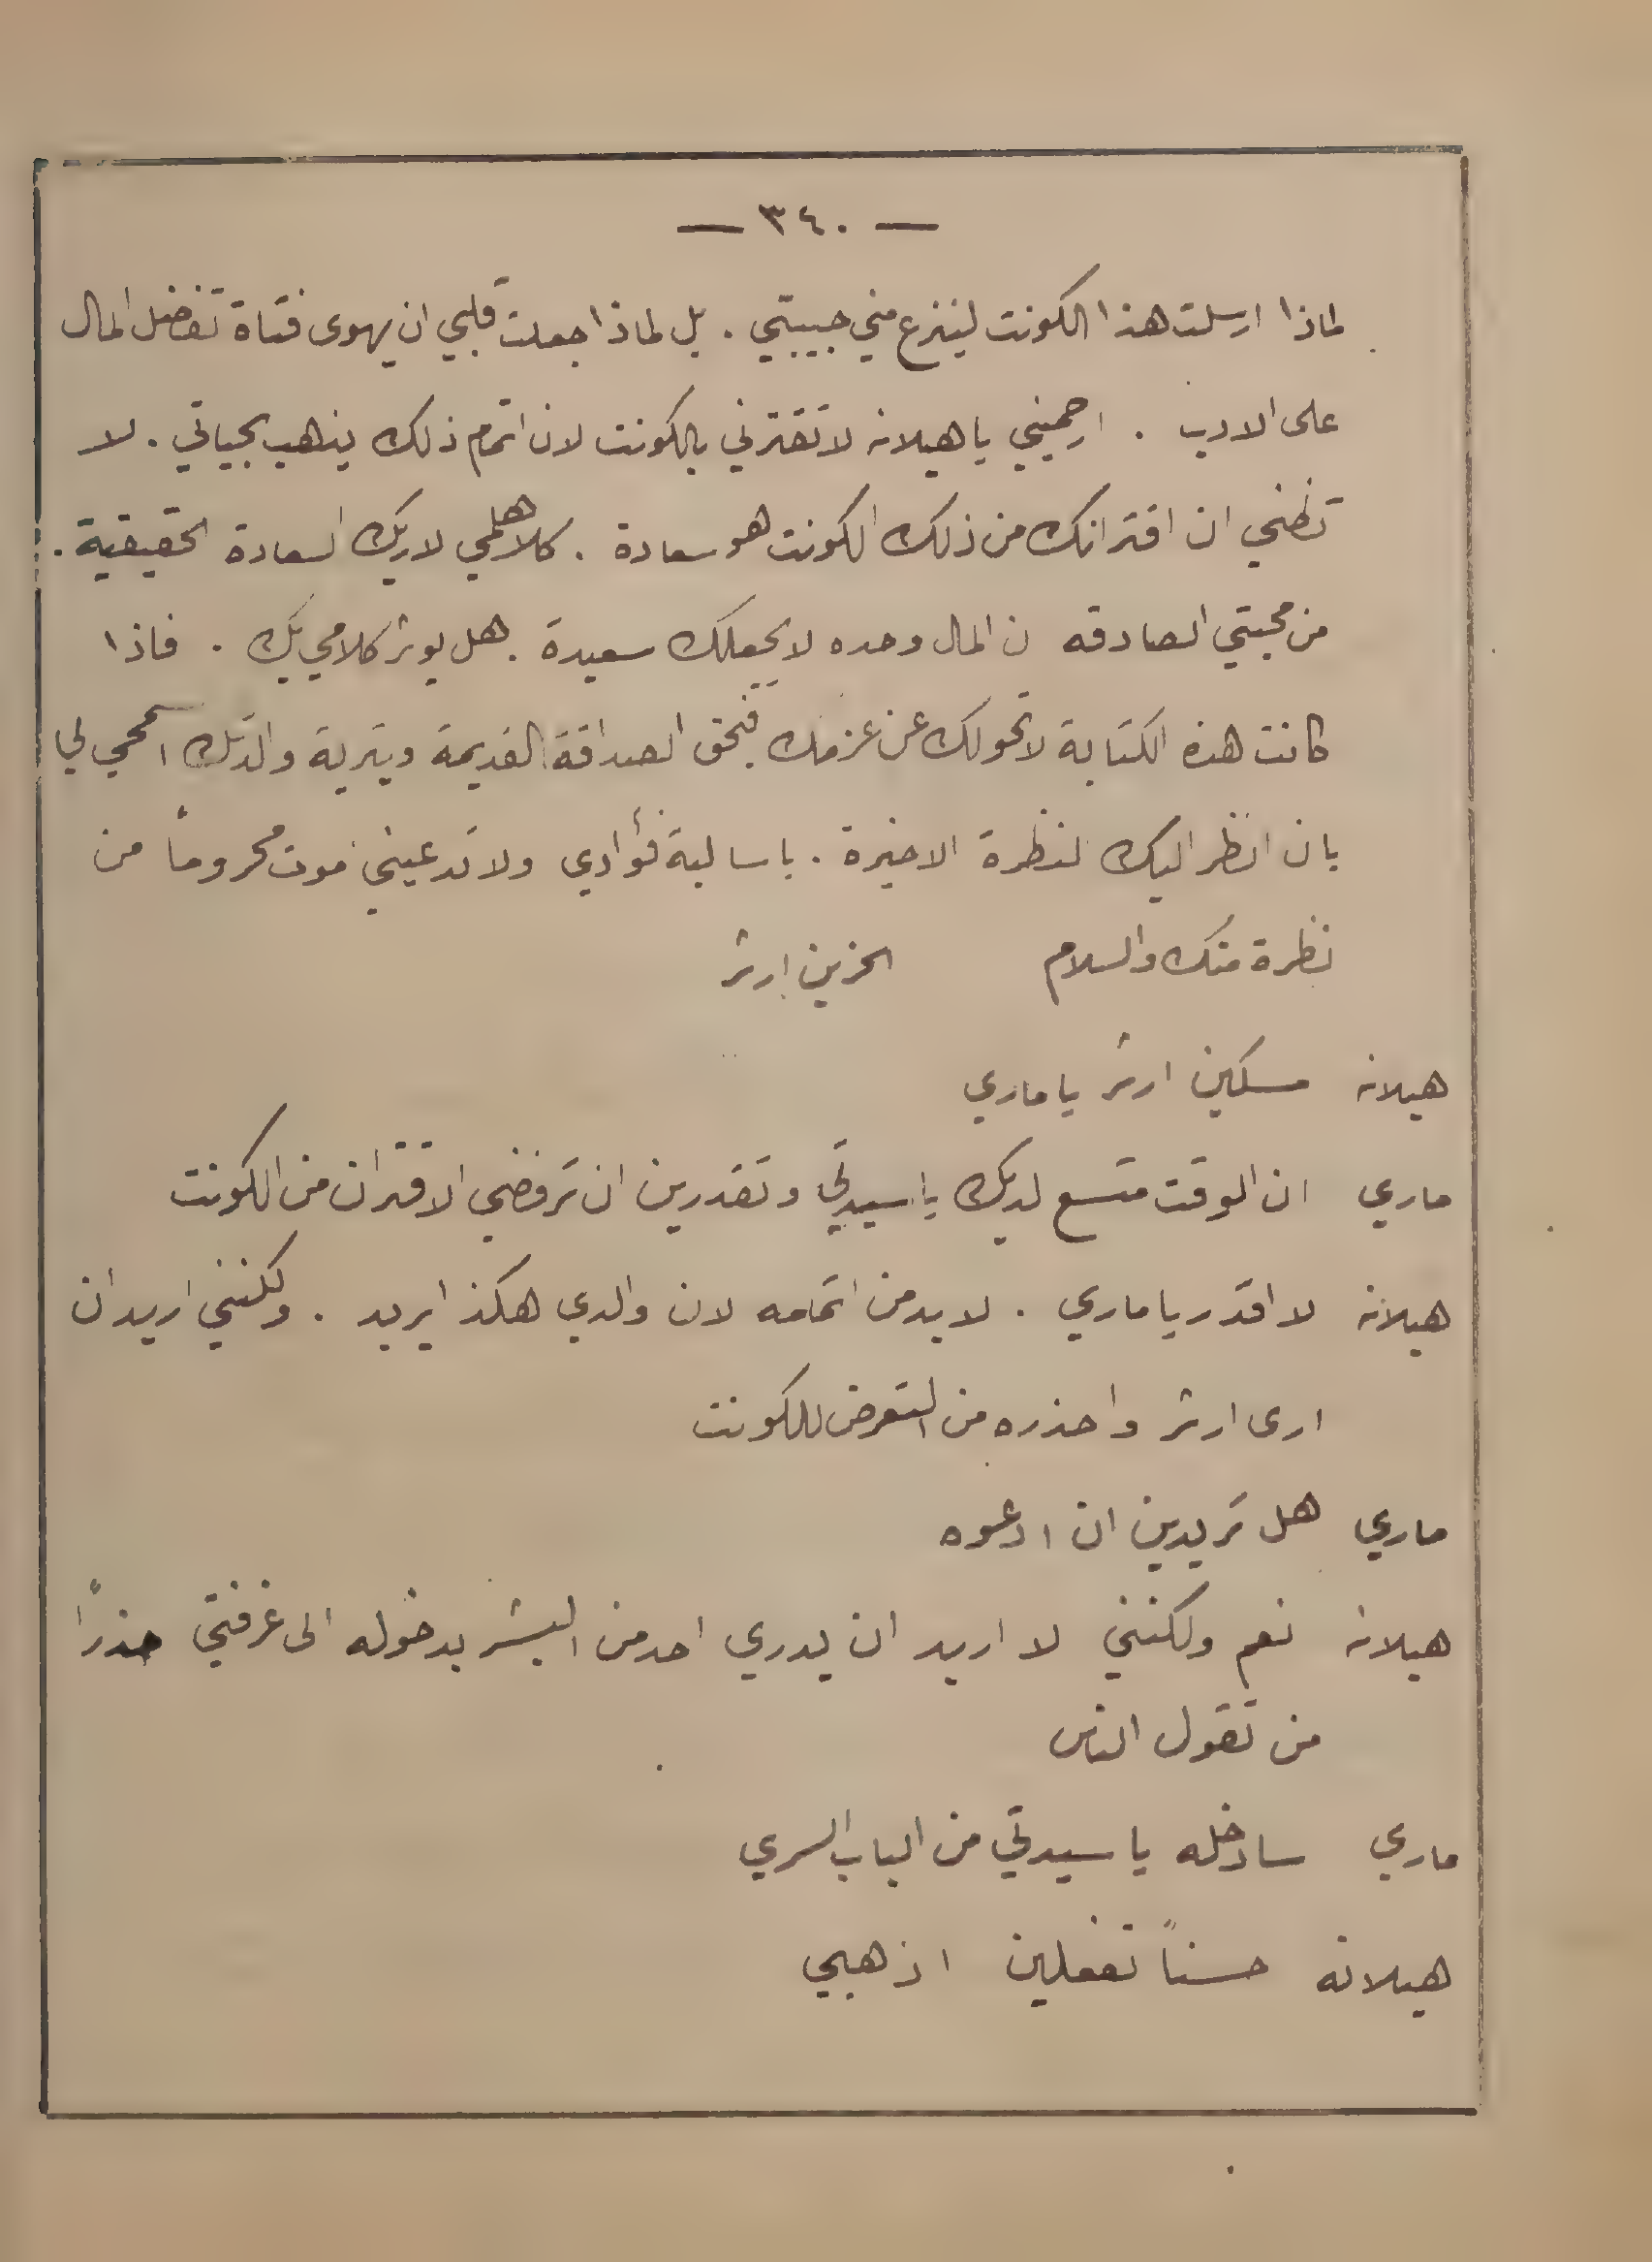 — ٣٤٠ —
لماذا ارسلت هذا الكونت لينزع مني حبيبتي . بل لماذا جعلت قلبي ان يهوى فتاة تفضل المال
على الادب . ارحميني يا هيلانه لا تقترني بالكونت لان اتمام ذلك يذهب بحياتي . لا
تظني ان اقترانك من ذلك الكونت هو سعادة . كلا هلمي لاريك السعادة الحقيقية .
من محبتي الصادقه ان المال وحده لا يجعلك سعيدة . هل يوثر كلامي بك . فاذا
كانت هذه الكتابة لا تحولك عن عزمك فبحق الصداقة القديمة وبتربة والدتك اسمحي لي
بان انظر اليك النظرة الاخيرة . يا سالبة فؤادي ولا تدعيني اموت محروماً من
نظرة منك والسلام الحزين ارثر
هيلانه مسكين ارثر يا ماري
ماري ان الوقت متسع لديك يا سيدتي وتقدرين ان ترفضي الاقتران من الكونت
هيلانه لا اقدر يا ماري . لا بد من اتمامه لان والدي هكذا يريد . ولكنني اريد ان
ارى ارثر واحذره من التعرض للكونت
ماري هل تريدين ان ادعوه
هيلانه نعم ولكنني لا اريد ان يدري احد من البشر بدخوله الى غرفتي حذراً
من تقول الناس
ماري سادخله يا سيدتي من الباب السري
هيلانه حسناً تفعلين اذهبي